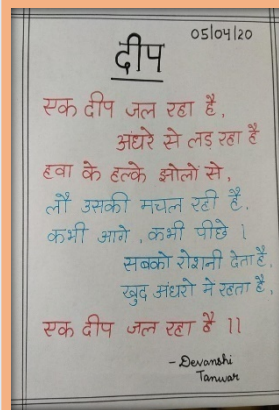 05/04/20
दीप
एक दीप जल रहा है,
अंधरे से लड़ रहा है
हवा के हल्के झोलो से,
लौ उसकी मचल रही है,
कभी आगे, कभी पीछे।
सबको रोशनी देता है,
खुद अंधरो मे रहता है,
एक दीप जल रहा है ।।
- Devanshi
Tanwar